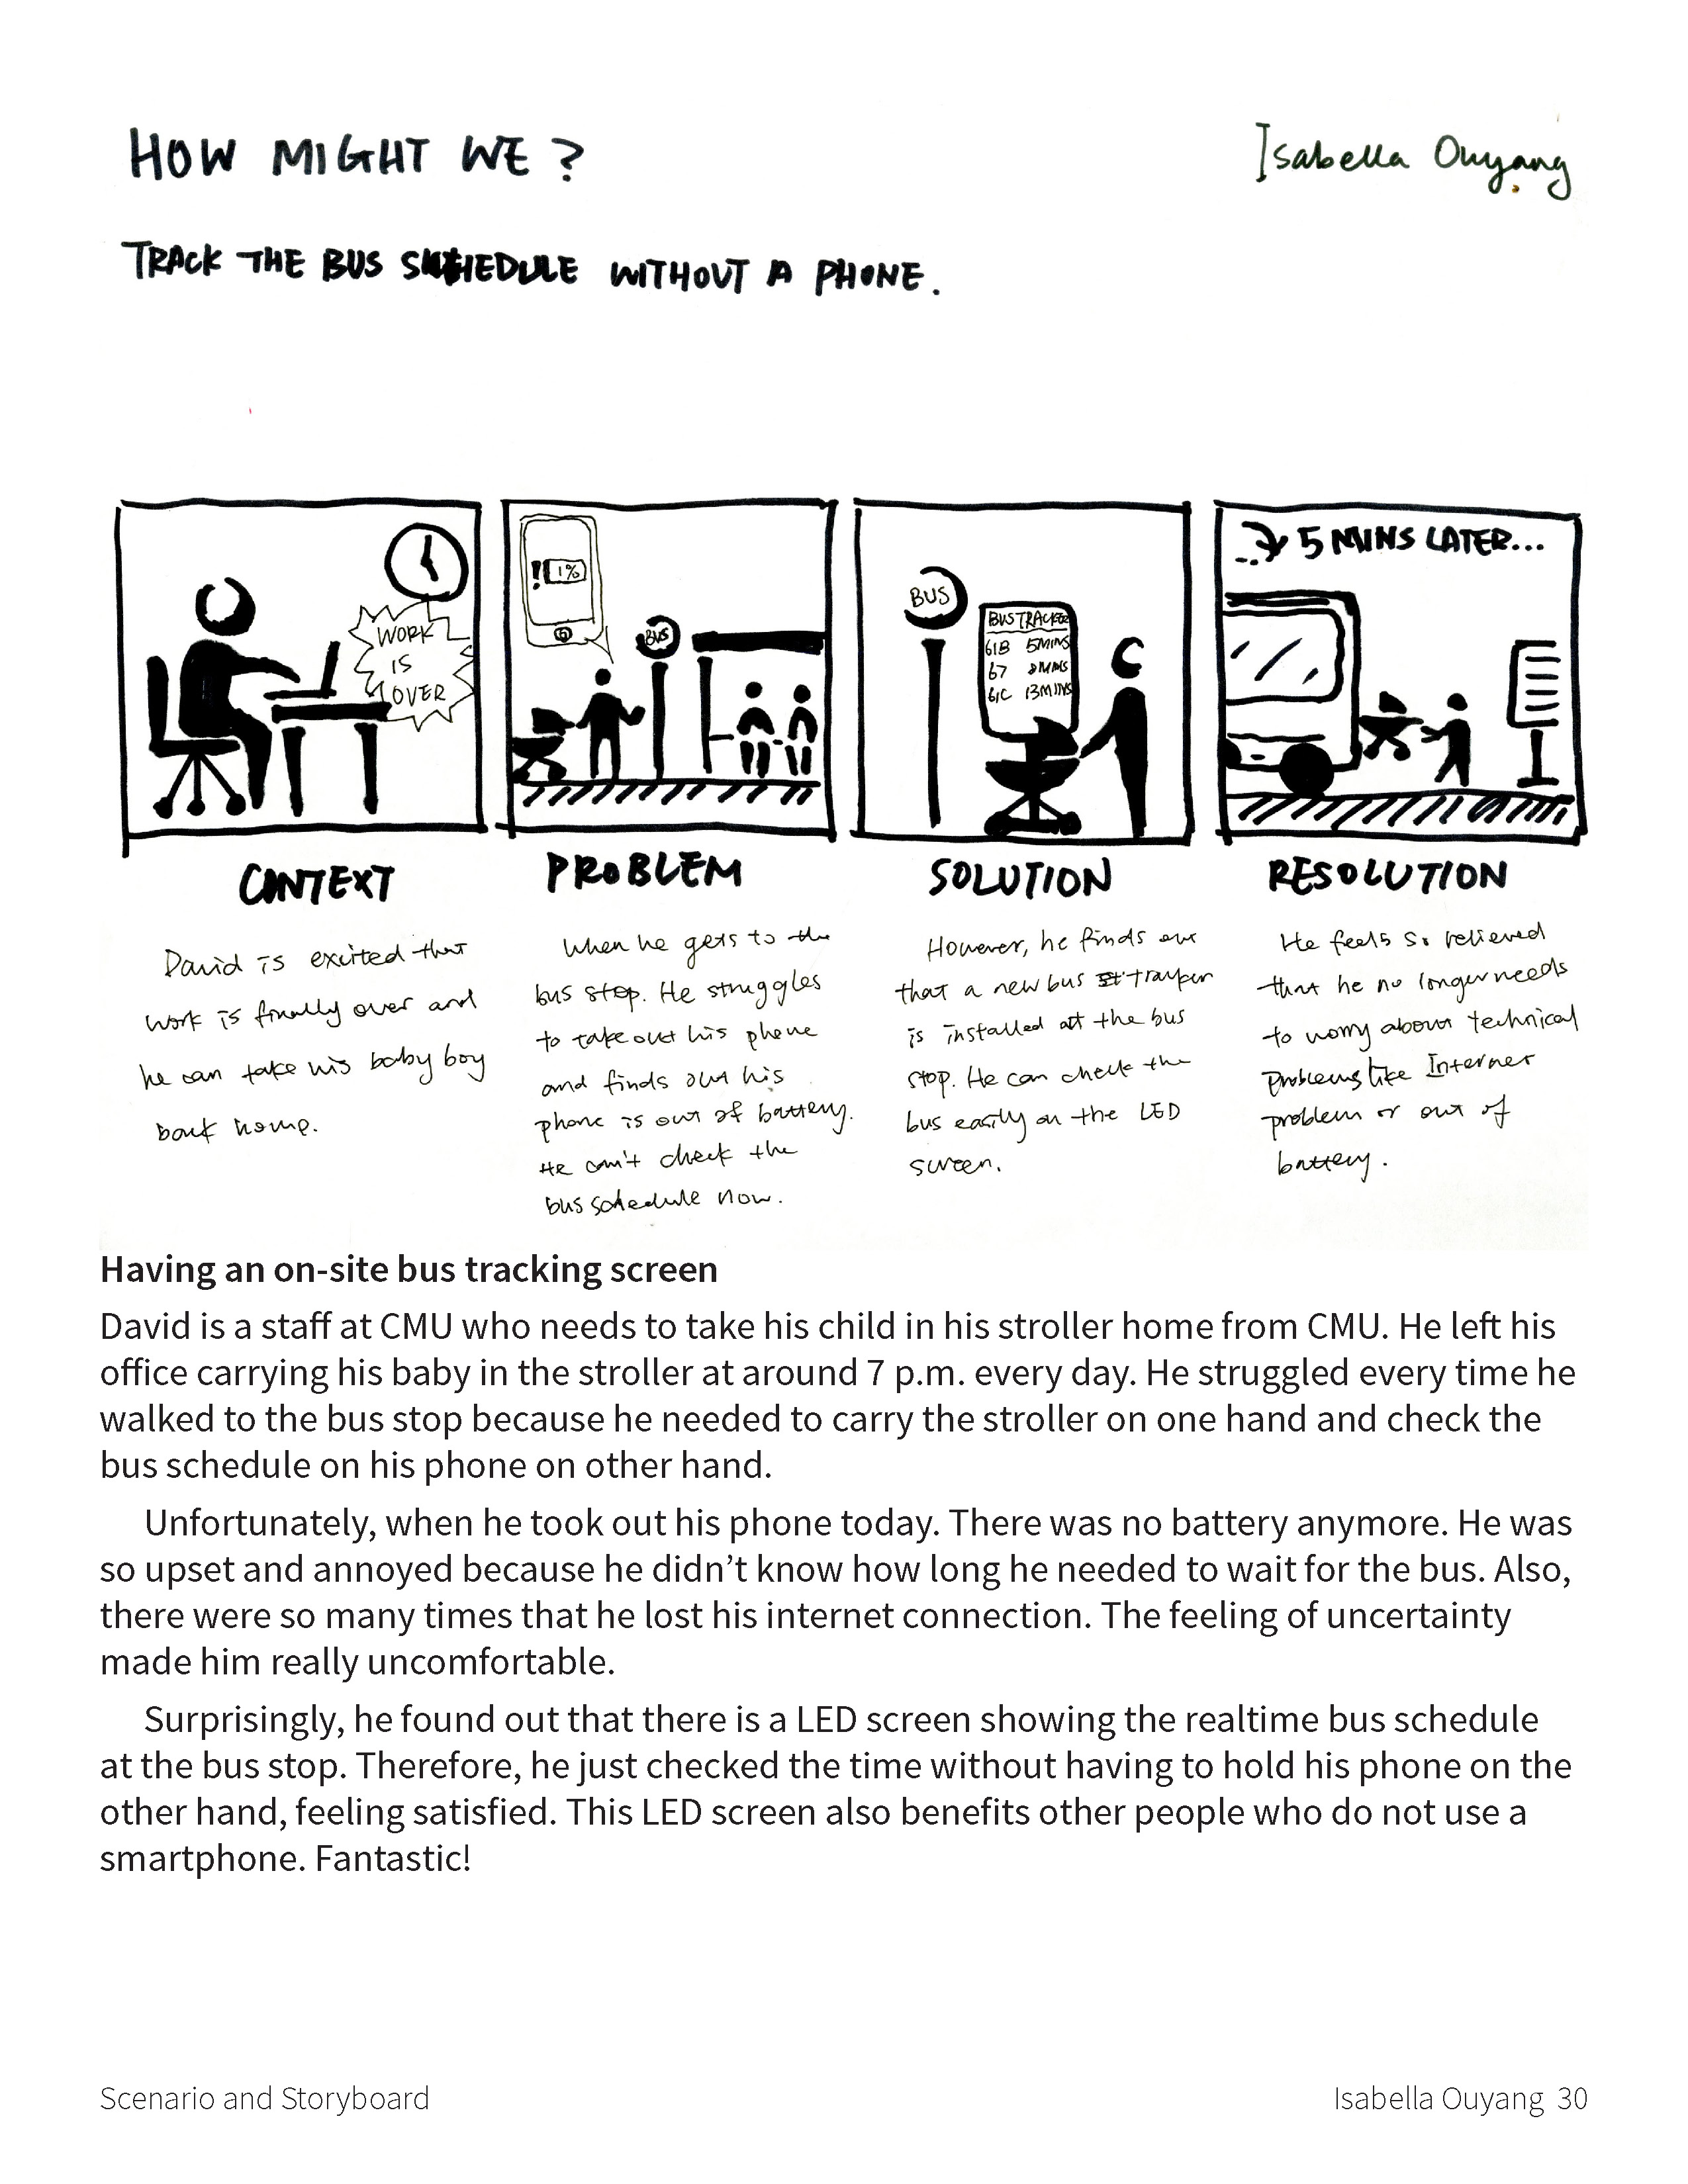 HOW MIGHT WE ?
Isabella Ouyang
TRACK THE BUS SCHEDULE WITHOUT A PHONE.
WORK
IS
OVER
! 1%
BUS
BUS
BUSTRACKER
61B 5MINS
67 8MINS
61C 13MINS
5 MINS LATER...
CONTEXT
David is excited that
work is finally over and
he can take his baby boy
back home.
PROBLEM
When he gets to the
bus stop. He struggles
to take out his phone
and finds out his
phone is out of battery.
He can't check the
bus schedule now.
SOLUTION
However, he finds out
that a new bus tracker
is installed at the bus
stop. He can check the
bus easily on the LED
screen.
RESOLUTION
He feels so relieved
that he no longer needs
to worry about technical
problems like Internet
problem or out of
battery.
Having an on-site bus tracking screen
David is a staff at CMU who needs to take his child in his stroller home from CMU. He left his
office carrying his baby in the stroller at around 7 p.m. every day. He struggled every time he
walked to the bus stop because he needed to carry the stroller on one hand and check the
bus schedule on his phone on other hand.
Unfortunately, when he took out his phone today. There was no battery anymore. He was
so upset and annoyed because he didn’t know how long he needed to wait for the bus. Also,
there were so many times that he lost his internet connection. The feeling of uncertainty
made him really uncomfortable.
Surprisingly, he found out that there is a LED screen showing the realtime bus schedule
at the bus stop. Therefore, he just checked the time without having to hold his phone on the
other hand, feeling satisfied. This LED screen also benefits other people who do not use a
smartphone. Fantastic!
Scenario and Storyboard
Isabella Ouyang 30